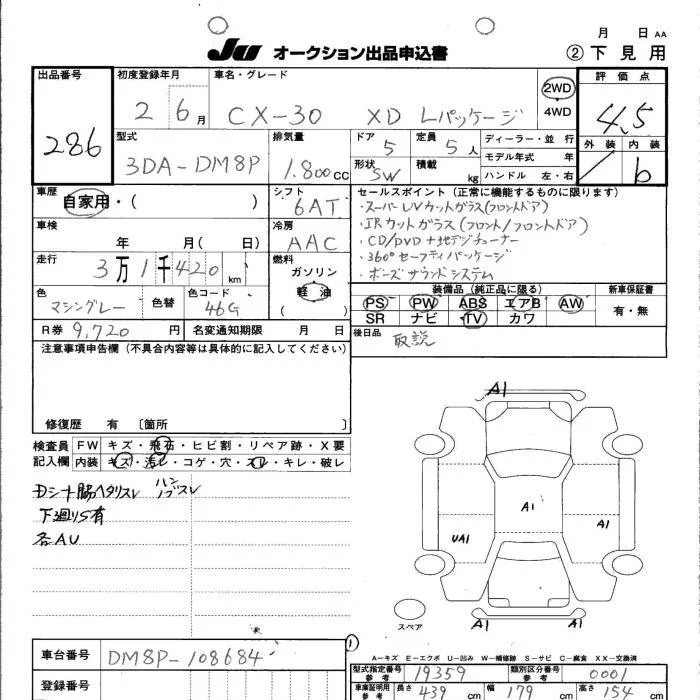 月 日 AA
JU オークション出品申込書 ②下見用
出品番号 286
初度登録年月 26月
車名・グレード CX-30 XD Lパッケージ
2WD
4WD
評価点 4.5
外装 内装 b
型式 3DA-DM8P
排気量 1.800cc
ドア 5 定員 5人
形状 SW 積載 kg
ディーラー・並行
モデル年式 年
ハンドル 左・右
車歴 自家用・( )
シフト 6AT
車検 年 月(日)
冷房 AAC
走行 3万1千420km
燃料 ガソリン 軽油 ( )
色 マシングレー 色替 色コード 46G
R券 9,720円 名変通知期限 月 日
セールスポイント(正常に機能するものに限ります)
・スーパーUVカットガラス(フロントドア)
・IRカットガラス(フロント/フロントドア)
・CD/DVD+地デジチューナー
・360°セーフティパッケージ
・ボーズサウンドシステム
装備品(純正品に限る) 新車保証書
PS PW ABS エアB AW 有・無
SR ナビ TV カワ
後日品 取説
注意事項申告欄(不具合内容等は具体的に記入してください)
修復歴 有 〔箇所 〕
検査員記入欄
FW キズ・飛石・ヒビ割・リペア跡・X要
内装 キズ・汚レ・コゲ・穴・スレ・キレ・破レ
Dシート脇ヘタリスレ ハンドルスレ
下廻りS有
各AU
A1
A1
A1
UA1
A1
A1
スペア
車台番号 DM8P-108684
登録番号
①
A-キズ E-エクボ U-凹み W-補修跡 S-サビ C-腐食 XX-交換済
型式指定番号 参考 19359 類別区分番号 参考 0001
車庫証明用 参考 長さ 439cm 幅 179cm 高さ 154cm